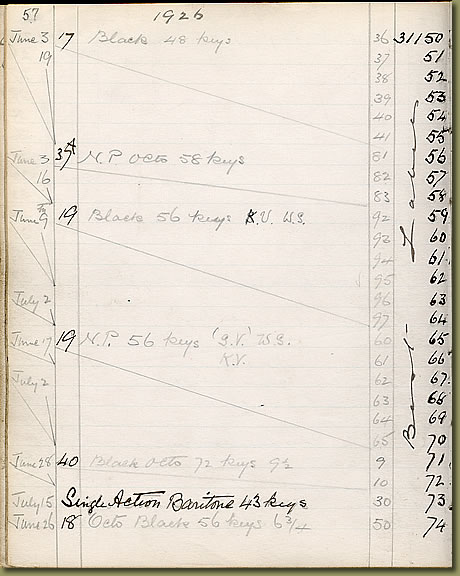 57 1926
June 3 17 Black 48 keys 36 31150
19 37 51
38 52
39 53
40 54
41 55
June 3 37A N.P. Octo 58 keys 81 56
16 82 57
83 58
June 9 19 Black 56 keys K.V. W.S. 92 59
93 60
94 61
95 62
July 2 96 63
97 64
June 17 19 N.P. 56 keys 'S.V.' W.S. 60 65
K.V. 61 66
July 2 62 67
63 68
64 69
65 70
June 28 40 Black Octo 72 keys 9½ 9 71
10 72
July 15 Single Action Baritone 43 keys 30 73
June 26 18 Octo Black 56 keys 6¾ 50 74